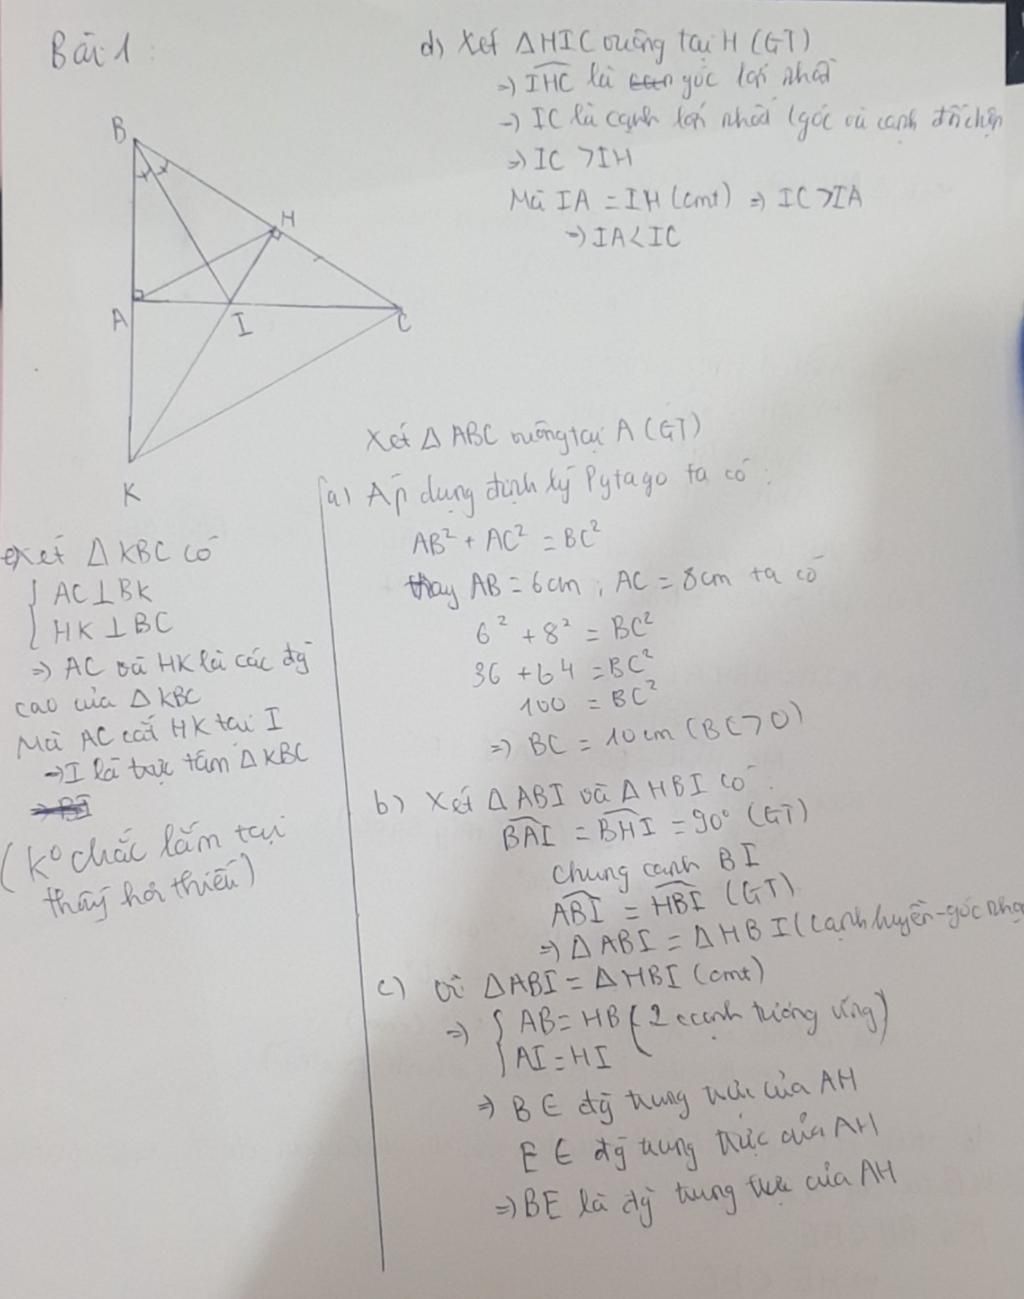 Bài 1:
B
H
A
I
C
K
d) Xét ΔHIC vuông tại H (GT)
⇒ IHC là góc lớn nhất
⇒ IC là cạnh lớn nhất (góc và cạnh đối diện
⇒ IC > IH
Mà IA = IH (cmt) ⇒ IC > IA
⇒ IA < IC
Xét Δ ABC vuông tại A (GT)
a) Áp dụng định lý Pytago ta có:
AB² + AC² = BC²
thay AB = 6cm, AC = 8cm ta có
6² + 8² = BC²
36 + 64 = BC²
100 = BC²
⇒ BC = 10cm (BC > 0)
b) Xét Δ ABI và Δ HBI có:
BAI = BHI = 90° (GT)
Chung cạnh BI
ABI = HBI (GT)
⇒ Δ ABI = Δ HBI (cạnh huyền-góc nhọn
c) Vì ΔABI = ΔHBI (cmt)
⇒ { AB = HB (2 cạnh tương ứng)
AI = HI
⇒ B ∈ đg trung trực của AH
E ∈ đg trung trực của AH
⇒ BE là đg trung trực của AH
e) xét Δ KBC có
{ AC ⊥ BK
HK ⊥ BC
⇒ AC và HK là các đg
cao của Δ KBC
Mà AC cắt HK tại I
⇒ I là trực tâm Δ KBC
(K° chắc lắm tại
thấy hơi thiếu)